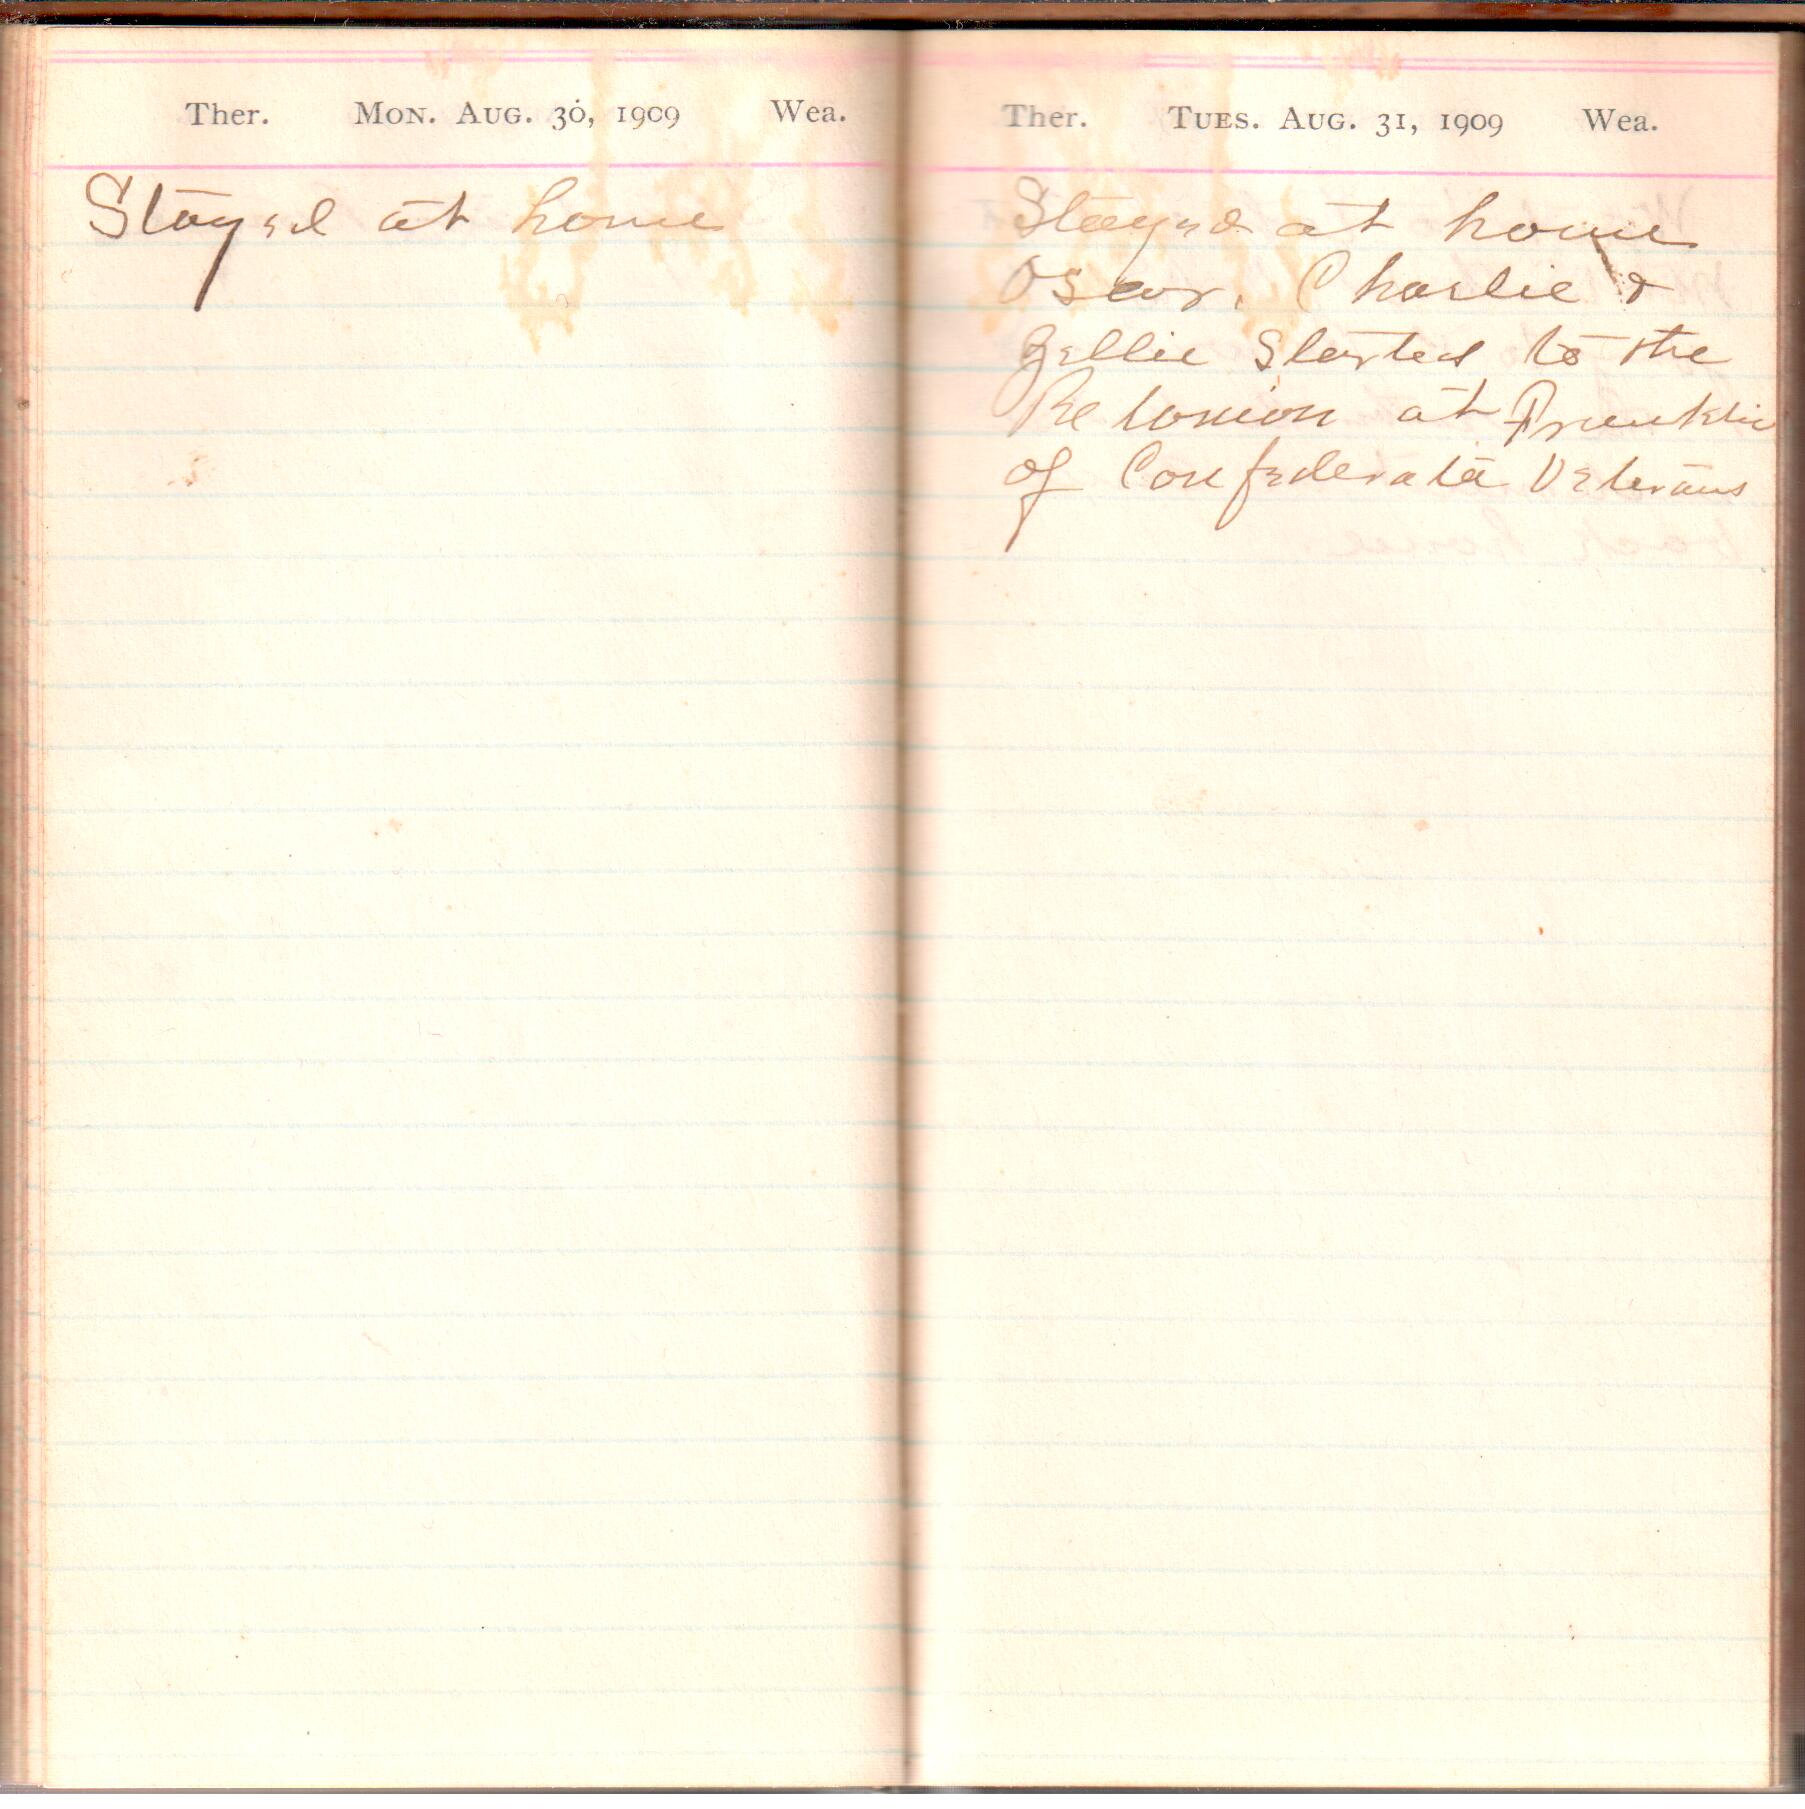 Ther. Mon. Aug. 30, 1909 Wea.
Stayed at home
Ther. Tues. Aug. 31, 1909 Wea.
Stayed at home
Oscar, Charlie &
Zellie Started to the
Re Union at Franklin
of Confederate Veterans